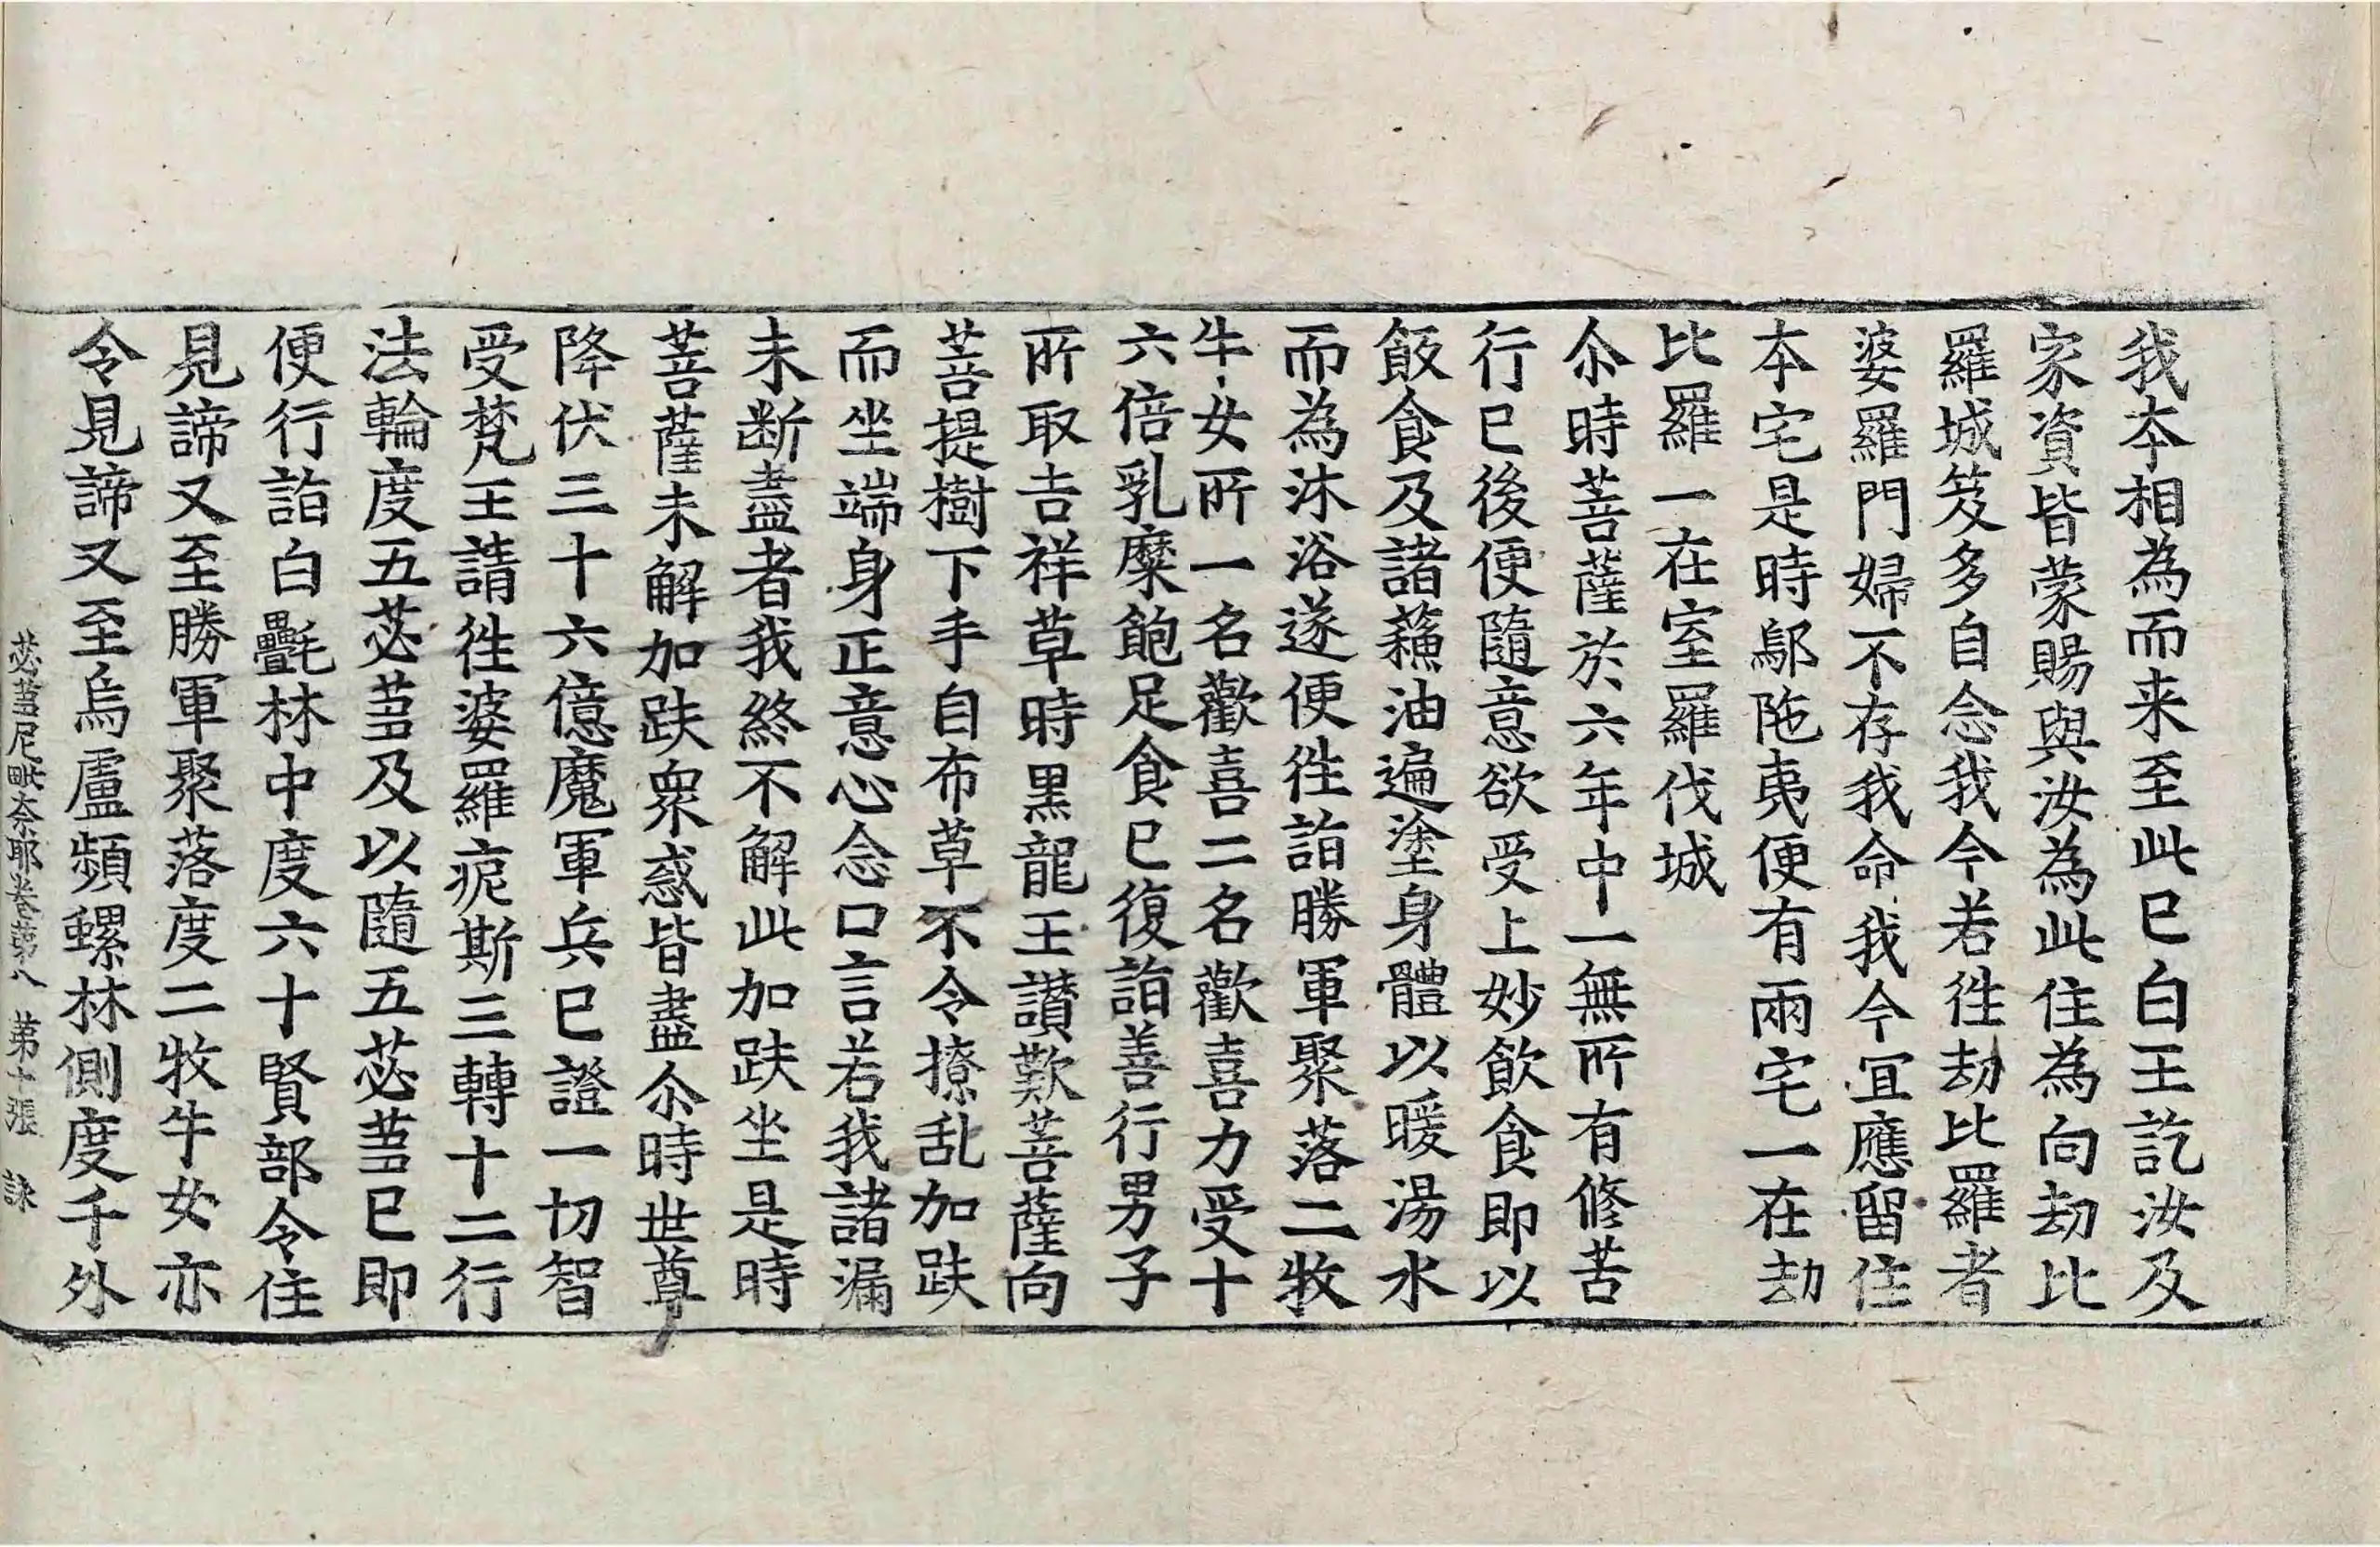 我本相為而来至此已白王訖汝及
家資皆蒙賜與汝為此住為向劫比
羅城笈多自念我今若徃劫比羅者
婆羅門婦不存我命我今宜應留住
本宅是時鄔陁夷便有兩宅一在劫
比羅一在室羅伐城
尒時菩薩於六年中一無所有修苦
行已後便隨意欲受上妙飲食即以
飯食及諸蘓油遍塗身體以暖湯水
而為沐浴遂便徃詣勝軍聚落二牧
牛女所一名歡喜二名歡喜力受十
六倍乳糜飽足食已復詣善行男子
所取吉祥草時黒龍王讃歎菩薩向
菩提樹下手自布草不令撩乱加趺
而坐端身正意心念口言若我諸漏
未断盡者我終不解此加趺坐是時
菩薩未解加趺衆惑皆盡尒時世尊
降伏三十六億魔軍兵已證一切智
受梵王請徃婆羅痆斯三轉十二行
法輪度五苾芻及以隨五苾芻已即
便行詣白㲲林中度六十賢部令住
見諦又至勝軍聚落度二牧牛女亦
令見諦又至烏盧頻螺林側度千外
苾芻尼毗奈耶卷第八 第十張 詠